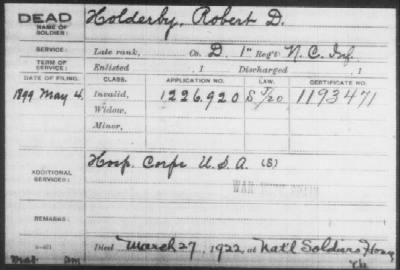 DEAD
NAME OF SOLDIER:
Holderby, Robert D.
SERVICE:
Late rank, Co. D. 1" Reg't N. C. Inf.
TERM OF SERVICE:
Enlisted , 1 Discharged , 1
DATE OF FILING. CLASS. APPLICATION NO. LAW. CERTIFICATE NO.
1899 May 4. Invalid, 1226.920 1193471
Widow,
Minor,
ADDITIONAL SERVICES:
Hosp. Corps U.S.A. (S)
REMARKS:
Died March 27, 1922, at Nat'l Soldiers Home